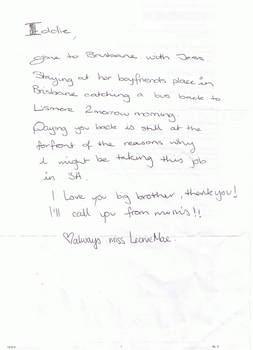 Eddie,
gone to Brisbane with Jess.
Staying at her boyfriends place in
Brisbane catching a bus back to
Lismore 2morrow morning
Paying you back is still at the
forfront of the reasons why
i might be taking this job
in SA.
I Love you big brother, thankyou!
I'll call you from mum's!!
♡always miss LeonieMae.